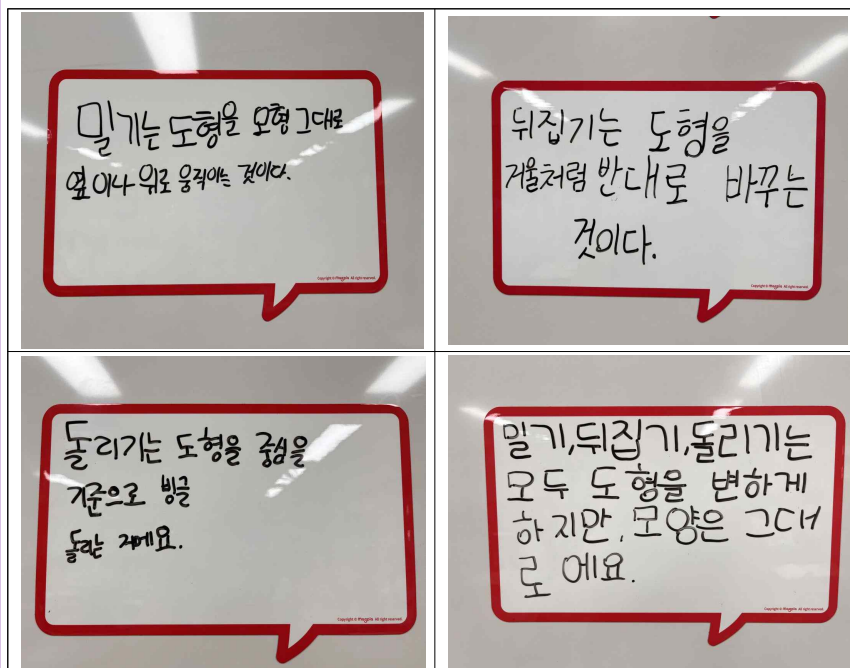 밀기는 도형을 모형 그대로
옆이나 위로 움직이는 것이다.
뒤집기는 도형을
거울처럼 반대로 바꾸는
것이다.
돌리기는 도형을 중심을
기준으로 빙글
돌리는 거에요.
밀기,뒤집기,돌리기는
모두 도형을 변하게
하지만, 모양은 그대
로 에요.